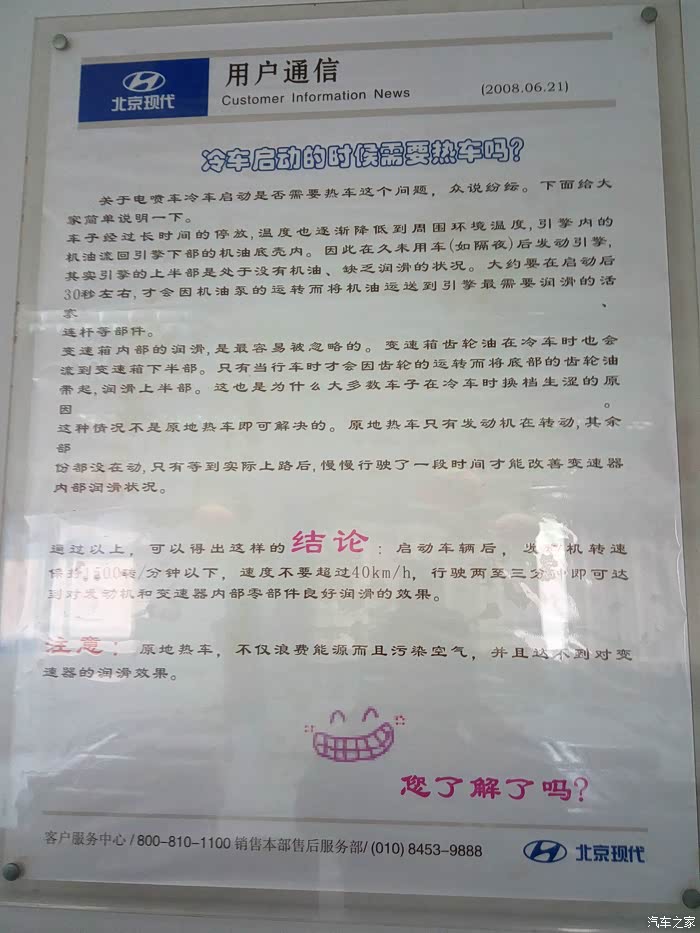 北京现代
用户通信
Customer Information News
(2008.06.21)
冷车启动的时候需要热车吗?
关于电喷车冷车启动是否需要热车这个问题，众说纷纭。下面给大
家简单说明一下。
车子经过长时间的停放,温度也逐渐降低到周围环境温度,引擎内的
机油流回引擎下部的机油底壳内。因此在久未用车(如隔夜)后发动引擎,
其实引擎的上半部是处于没有机油、缺乏润滑的状况。大约要在启动后
30秒左右,才会因机油泵的运转而将机油运送到引擎最需要润滑的活
塞、
连杆等部件。
变速箱内部的润滑,是最容易被忽略的。变速箱齿轮油在冷车时也会
流到变速箱下半部。只有当行车时才会因齿轮的运转而将底部的齿轮油
带起,润滑上半部。这也是为什么大多数车子在冷车时换档生涩的原
因。
这种情况不是原地热车即可解决的。原地热车只有发动机在转动,其余
部
份都没在动,只有等到实际上路后,慢慢行驶了一段时间才能改善变速器
内部润滑状况。
通过以上，可以得出这样的结论：启动车辆后，发动机转速
保持1500转/分钟以下，速度不要超过40km/h，行驶两至三分钟即可达
到对发动机和变速器内部零部件良好润滑的效果。
注意：原地热车，不仅浪费能源而且污染空气，并且达不到对变
速器的润滑效果。
您了解了吗?
客户服务中心/800-810-1100 销售本部售后服务部/(010) 8453-9888
北京现代
汽车之家